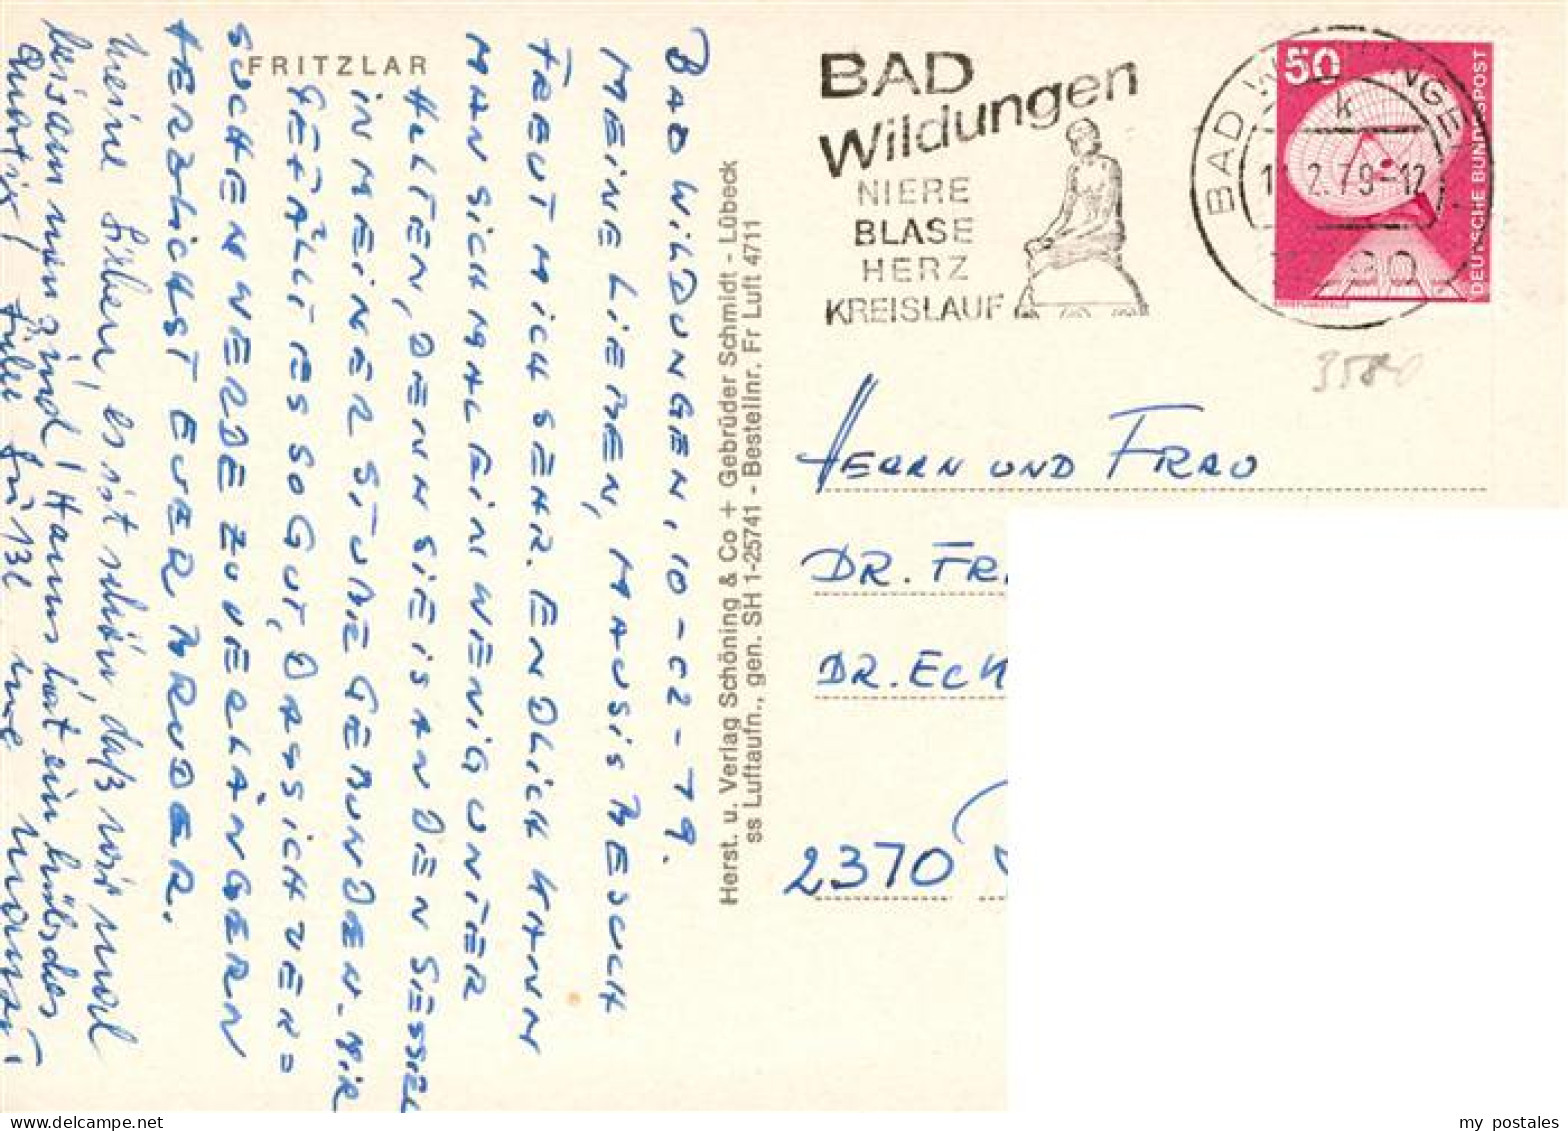 FRITZLAR
BAD WILDUNGEN, 10-02-79.
MEINE LIEBEN, MAUSIS BESUCH
FREUT MICH SEHR. ENDLICH KANN
MAN SICH MAL EIN WENIG UNTER
HALTEN, DENN SIE IST AN DEN SESSEL
IN MEINER STUBE GEBUNDEN. MIR
GEFÄLLT ES SO GUT, DASS ICH VER=
SUCHEN WERDE ZU VERLÄNGERN
HERZLICHST EUER BRUDER.
Meine Lieben, es ist schön, daß wir mal
beisammen sind! Hanns hat ein hübsches
Quartier! Viele Grüße
Herst. u. Verlag Schöning & Co + Gebrüder Schmidt - Lübeck
ss Luftaufn., gen. SH 1-25741 - Bestellnr. Fr Luft 4711
BAD
Wildungen
NIERE
BLASE
HERZ
KREISLAUF
BAD WILDUNGEN
k
2.79-12
50
DEUTSCHE BUNDESPOST
3580
HERRN UND FRAU
DR. FR.
DR. ECK
2370
my postales